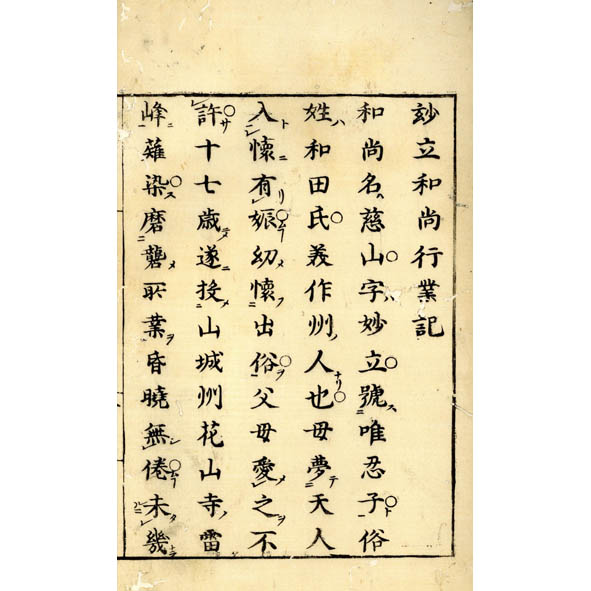 玅立和尚行業記
和尚名慈山字妙立號唯忍子俗
姓和田氏美作州人也母夢天人
入懷有娠幼懷出俗父母愛之不
許十七歳遂投山城州花山寺雷
峰薙染磨礱所業昏曉無倦未幾